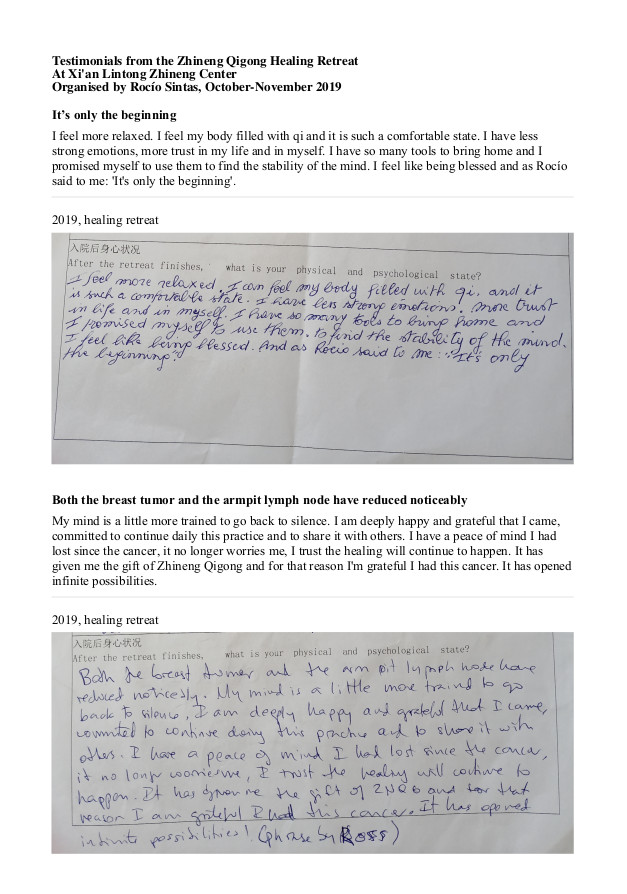 Testimonials from the Zhineng Qigong Healing Retreat
At Xi'an Lintong Zhineng Center
Organised by Rocío Sintas, October-November 2019
It's only the beginning
I feel more relaxed. I feel my body filled with qi and it is such a comfortable state. I have less
strong emotions, more trust in my life and in myself. I have so many tools to bring home and I
promised myself to use them to find the stability of the mind. I feel like being blessed and as Rocío
said to me: 'It's only the beginning'.
2019, healing retreat
入院后身心状况
After the retreat finishes, what is your physical and psychological state?
I feel more relaxed. I can feel my body filled with qi. and it
is such a comfortable state. I have less strong emotions. more trust
in life and in myself. I have so many tools to bring home and
I promised myself to use them. to find the stability of the mind.
I feel like being blessed. And as Rocío said to me: "It's only
the beginning"
Both the breast tumor and the armpit lymph node have reduced noticeably
My mind is a little more trained to go back to silence. I am deeply happy and grateful that I came,
committed to continue daily this practice and to share it with others. I have a peace of mind I had
lost since the cancer, it no longer worries me, I trust the healing will continue to happen. It has
given me the gift of Zhineng Qigong and for that reason I'm grateful I had this cancer. It has opened
infinite possibilities.
2019, healing retreat
入院后身心状况
After the retreat finishes, what is your physical and psychological state?
Both the breast tumor and the arm pit lymph node have
reduced noticesly. My mind is a little more traind to go
back to silence, I am deeply happy and grateful that I came,
commited to continue doing this practice and to share it with
others. I have a peace of mind I had lost since the cancer,
it no longer worries me, I trust the healing will continue to
happen. It has given me the gift of ZNQG and for that
reason I am grateful I had this cancer. It has opened
infinite possibilities! (phrase by Ross)